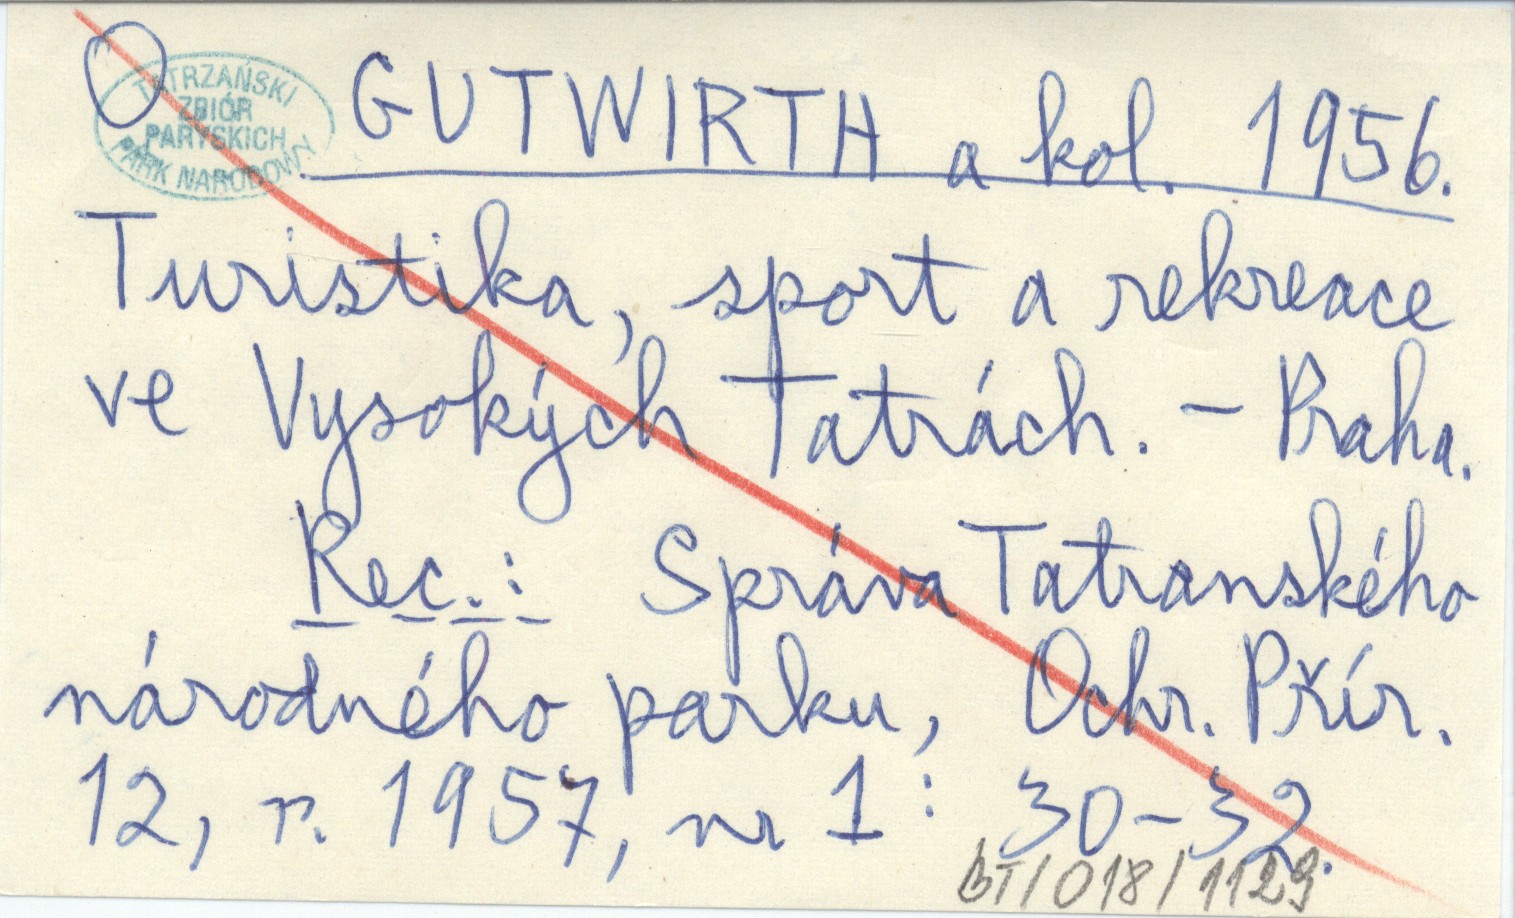 O
TATRZAŃSKI
ZBIÓR
PARYSKICH
PARK NARODOWY
GUTWIRTH a kol. 1956.
Turistika, sport a rekreace
ve Vysokých Tatrách. - Praha.
Rec.: Správa Tatranského
národného parku, Ochr. Přír.
12, r. 1957, nr 1: 30-32.
BT/018/1129